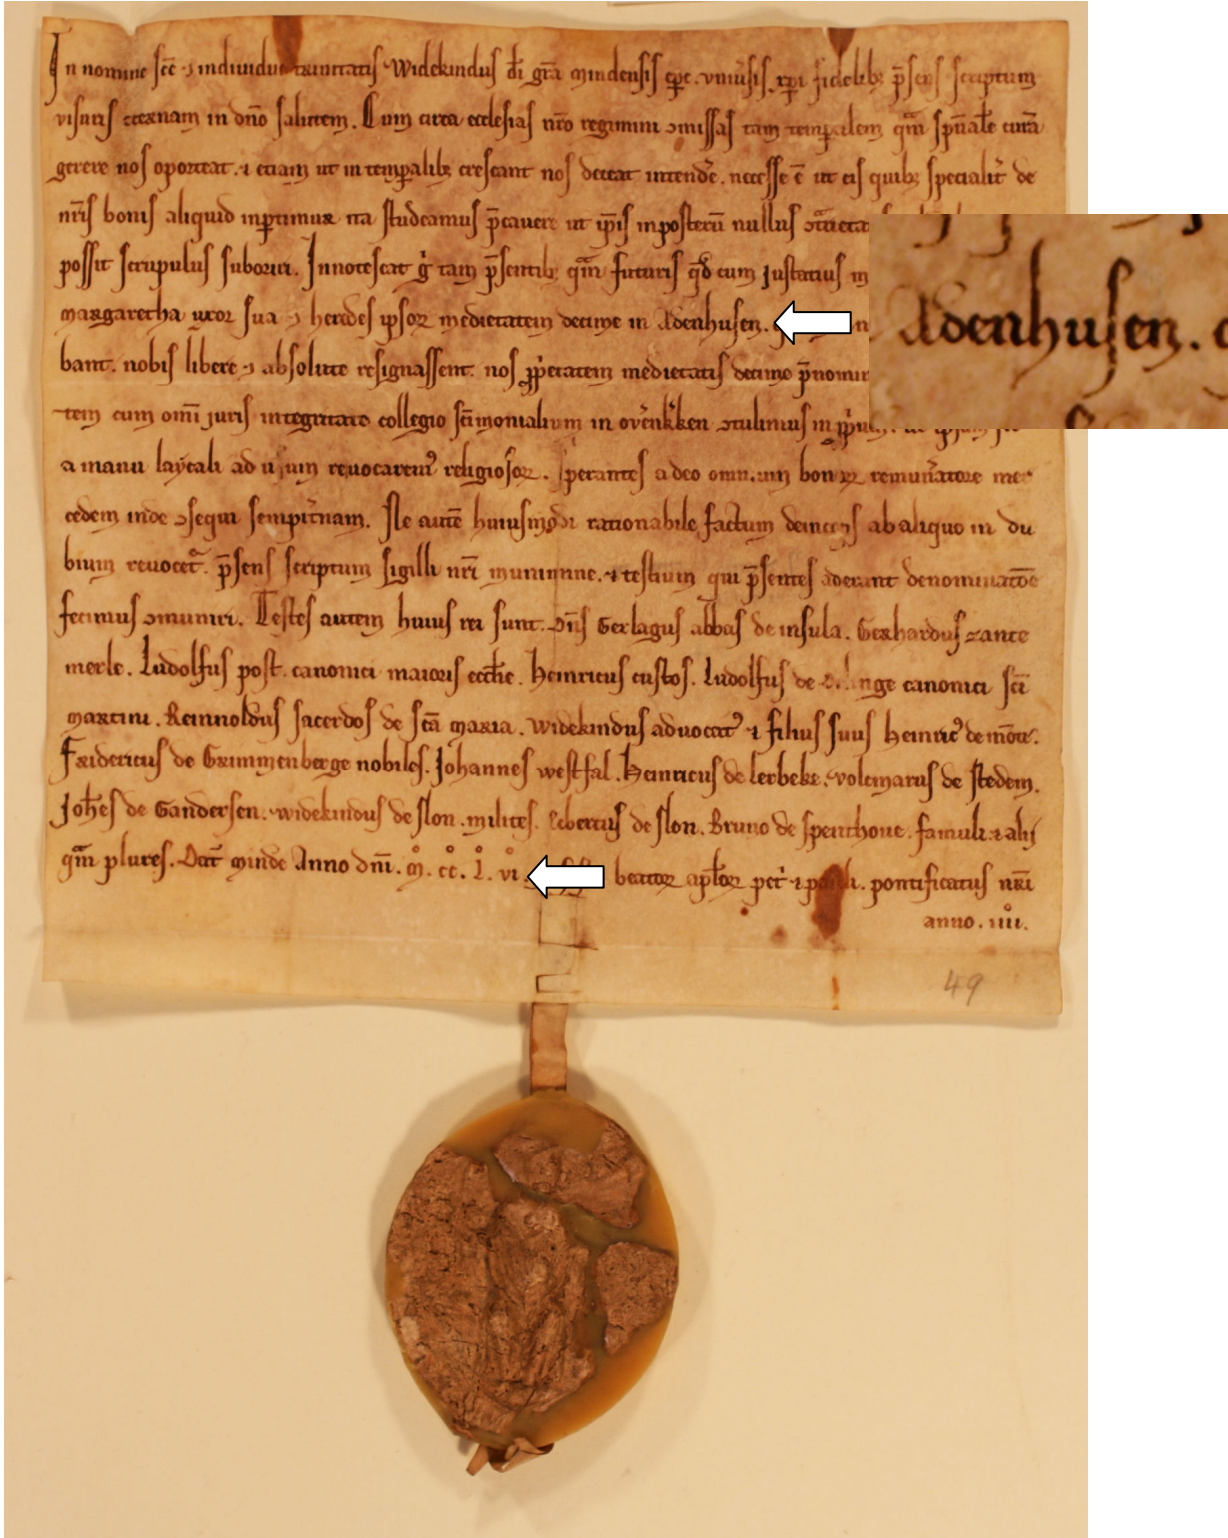 In nomine scē ⁊ indiuidue trinitatis Widekindus d̄i gr̄a mindensis ep̄c. vniu̾sis. xp̄i fidelibꝫ p̄sens scriptum
visuris eternam in dn̄o salutem. Cum circa ecclesias nr̄o regimini ꝯmissas tam temꝑalem qm̄ spūale curā
gerere nos oporteat. ⁊ etiam ut in temꝑalibꝫ crescant nos deceat intende̾. necesse ē ut eis quibꝫ specialit̾ de
nr̄is bonis aliquid inꝑtimur ita studeamus p̄cauere ut ip̄is inposterū nullus
possit scrupulus suboriri. Innotescat g̾ tam p̄sentibꝫ qm̄ futuris qd̄ cum Justatius
margaretha uxor sua ⁊ heredes ipsoꝝ medietatem decime in Adenhusen.
Adenhusen.
bant. nobis libere ⁊ absolute resignassent. nos medietatis decime
tem cum omī juris integritate collegio sc̄imonialium in ov̾enk̾ken ꝯtulimus
a manu laycali ad usum reuocaret᷑ religiosoꝝ. sperantes a deo omnium bonoꝝ remun̾atore mer
cedem inde ꝯsequi sempit̾nam. Ne autē huiusmodi rationabile factum ab aliquo in du
bium reuocet᷑. p̄sens scriptum sigilli nr̄i munimine. ⁊ testium qui p̄sentes aderant denominatōe
fecimus ꝯmuniri. Testes autem huius rei sunt. Dn̄s Gerlagus abbas de insula. Gerhardus zante
merle. Ludolfus post. canonici maioris eccl̄ie. Heinricus custos. Ludolfus de canonici sc̄i
martini. Reinnoldus sacerdos de sc̄a maria. widekindus aduocatꝰ ⁊ filius suus heinricꝰ de mōte.
Fridericus de Grimmenberge nobiles. Johannes westfal. Heinricus de lerbeke. volcmarus de stedem.
Joh̄es de Gandersen. widekindus de slon. milites. de slon. Bruno de spenthoue. famuli ⁊ alij
qm̄ plures. Dat̄ minde Anno dn̄i. m̊. cc̊. l̊. vi̊. beatoꝝ apl̄oꝝ pet̾ ⁊ pauli. pontificatus nr̄i
anno. iiii̊.
49